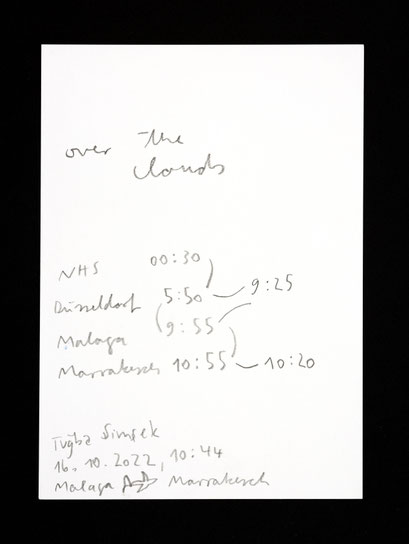 over the
clouds
NHS 00:30
Düsseldorf 5:50 9:25
Malaga 9:55
Marrakesch 10:55 10:20
Tuğba Simsek
16.10.2022, 10:44
Malaga Marrakesch